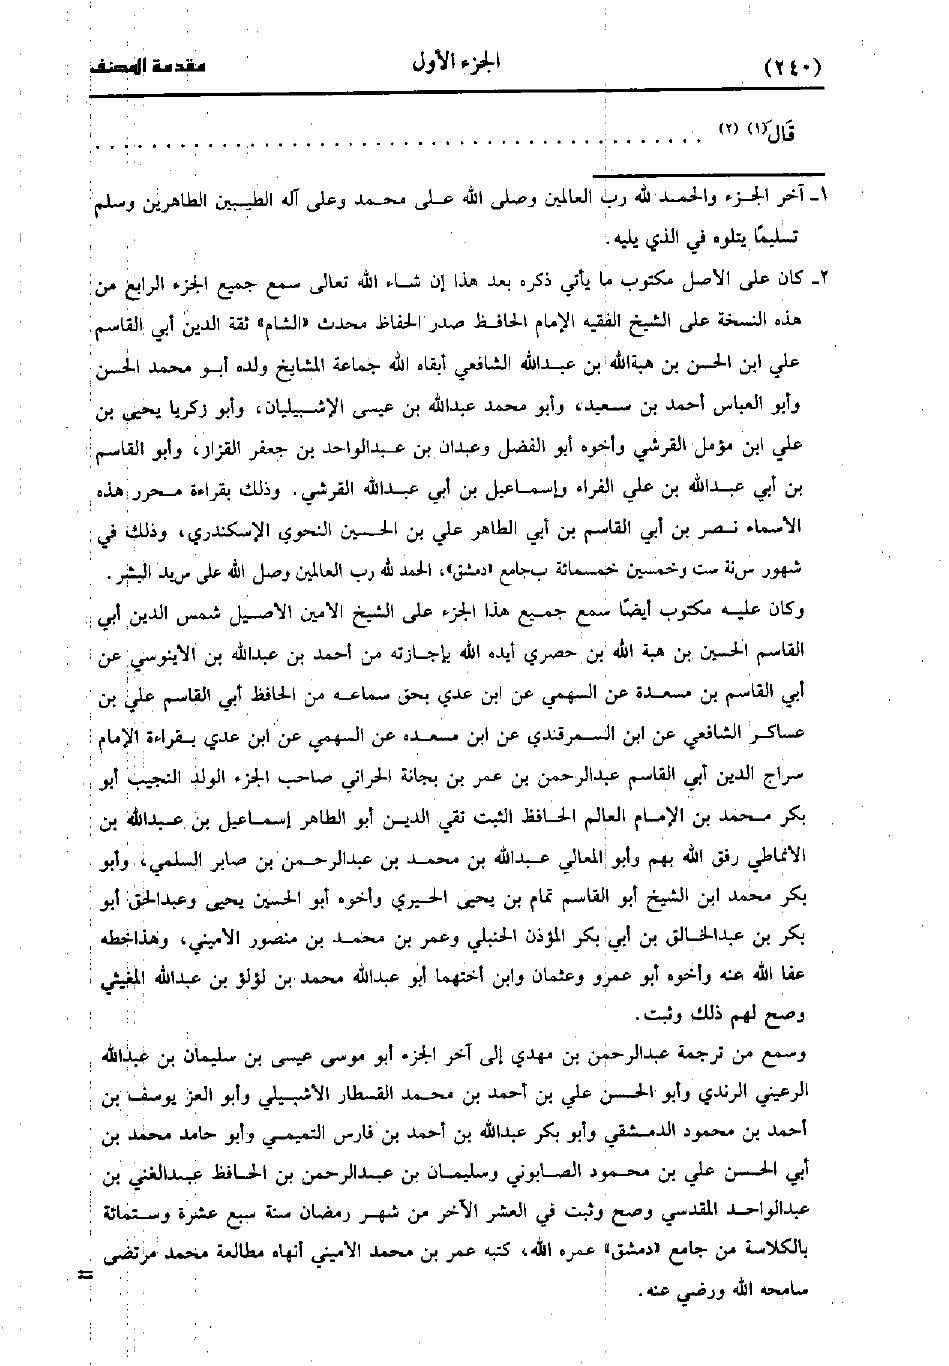 (٢٤٠) الجزء الأول مقدمة المصنف
قَالَ(١) (٢) . . . . . . . . . . . . . . . . . . . . . . . . . . . . . . . . . . . . . . . . . . . .
١ـ آخر الجزء والحمد لله رب العالمين وصلى الله على محمد وعلى آله الطيبين الطاهرين وسلم
تسليمًا يتلوه في الذي يليه.
٢ـ كان على الأصل مكتوب ما يأتي ذكره بعد هذا إن شاء الله تعالى سمع جميع الجزء الرابع من
هذه النسخة على الشيخ الفقيه الإمام الحافظ صدر الحفاظ محدث «الشام» ثقة الدين أبي القاسم
علي ابن الحسن بن هبةالله بن عبدالله الشافعي أبقاه الله جماعة المشايخ ولده أبو محمد الحسن
وأبو العباس أحمد بن سعيد، وأبو محمد عبدالله بن عيسى الإشبيليان، وأبو زكريا يحيى بن
علي ابن مؤمل القرشي وأخوه أبو الفضل وعبدان بن عبدالواحد بن جعفر القزار، وأبو القاسم
بن أبي عبدالله بن علي الفراء وإسماعيل بن أبي عبدالله القرشي. وذلك بقراءة محرر هذه
الأسماء نصر بن أبي القاسم بن أبي الطاهر علي بن الحسين النحوي الإسكندري، وذلك في
شهور سنة ست وخمسين خمسمائة بجامع «دمشق»، الحمد لله رب العالمين وصل الله على سيد البشر.
وكان عليه مكتوب أيضًا سمع جميع هذا الجزء على الشيخ الامين الاصيل شمس الدين أبي
القاسم الحسين بن هبة الله بن حصري أيده الله بإجازته من أحمد بن عبدالله بن الأبنوسي عن
أبي القاسم بن مسعدة عن السهمي عن ابن عدي بحق سماعه من الحافظ أبي القاسم علي بن
عساكر الشافعي عن ابن السمرقندي عن ابن مسعده عن السهمي عن ابن عدي بقراءة الإمام
سراج الدين أبي القاسم عبدالرحمن بن عمر بن بجانة الحراني صاحب الجزء الولد النجيب أبو
بكر محمد بن الإمام العالم الحافظ الثبت تقي الدين أبو الطاهر إسماعيل بن عبدالله بن
الأنماطي رفق الله بهم وأبو المعالي عبدالله بن محمد بن عبدالرحمن بن صابر السلمي، وأبو
بكر محمد ابن الشيخ أبو القاسم تمام بن يحيى الحيري وأخوه أبو الحسين يحيى وعبدالحق أبو
بكر بن عبدالخالق بن أبي بكر المؤذن الحنبلي وعمر بن محمد بن منصور الاميني، وهذاخطه
عفا الله عنه وأخوه أبو عمرو وعثمان وابن أختهما أبو عبدالله محمد بن لؤلؤ بن عبدالله المغيثي
وصح لهم ذلك وثبت.
وسمع من ترجمة عبدالرحمن بن مهدي إلى آخر الجزء أبو موسى عيسى بن سليمان بن عبدالله
الرعيني الرندي وأبو الحسن علي بن أحمد بن محمد القسطار الأشبيلي وأبو العز يوسف بن
أحمد بن محمود الدمشقي وأبو بكر عبدالله بن أحمد بن فارس التميمي وأبو حامد محمد بن
أبي الحسن علي بن محمود الصابوني وسليمان بن عبدالرحمن بن الحافظ عبدالغني بن
عبدالواحد المقدسي وصح وثبت في العشر الآخر من شهر رمضان سنة سبع عشرة وستمائة
بالكلاسة من جامع «دمشق» عمره الله، كتبه عمر بن محمد الاميني أنهاه مطالعة محمد مرتضى
سامحه الله ورضي عنه.